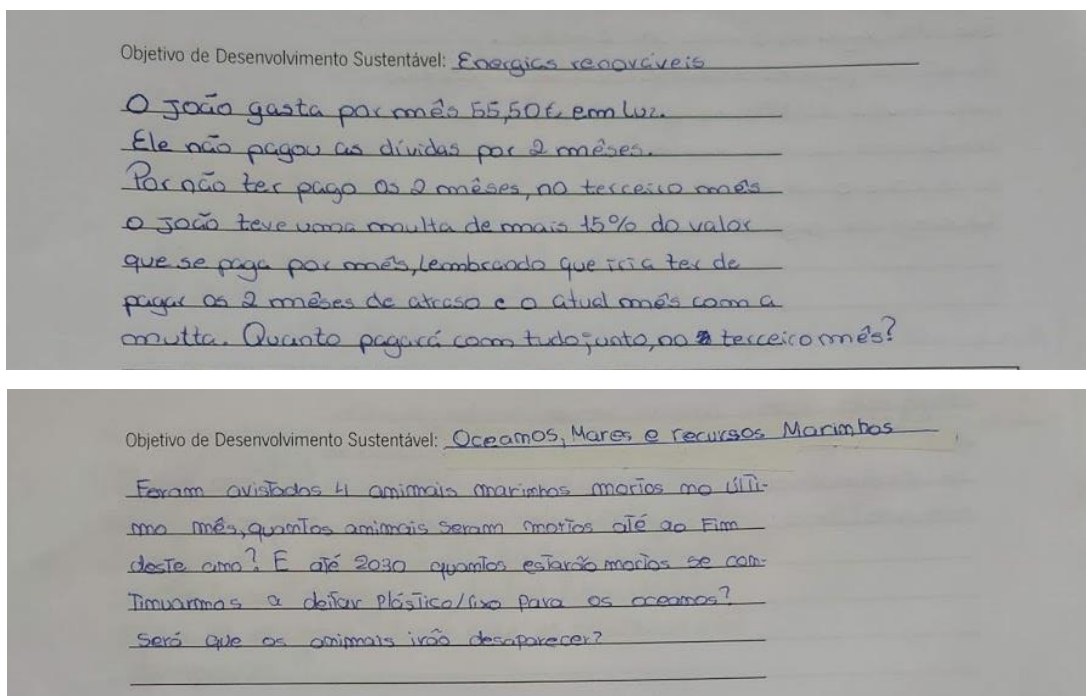 Objetivo de Desenvolvimento Sustentável: Energias renováveis
O João gasta por mês 55,50€ em luz.
Ele não pagou as dívidas por 2 mêses.
Por não ter pago os 2 mêses, no terceiro mês
o João teve uma multa de mais 15% do valor
que se paga por mês, lembrando que iria ter de
pagar os 2 mêses de atraso e o atual mês com a
multa. Quanto pagará com tudo junto, no terceiro mês?
Objetivo de Desenvolvimento Sustentável: Oceanos, Mares e recursos Marinhos
Foram avistados 4 animais marinhos mortos no últi-
mo mês, quantos animais seram mortos até ao Fim
deste ano? E até 2030 quantos estarão mortos se con-
tinuarmos a deitar Plástico/lixo para os oceanos?
Será que os animais irão desaparecer?